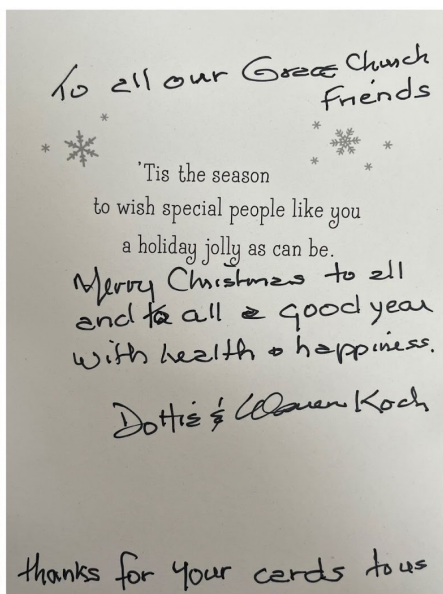 To all our Grace Church
Friends
'Tis the season
to wish special people like you
a holiday jolly as can be.
Merry Christmas to all
and to all a good year
with health & happiness.
Dottie & Warren Koch
thanks for your cards to us